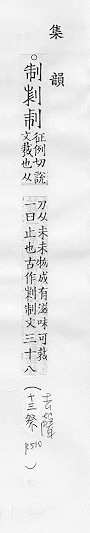 集韻
。制𠛐𠜲征例切說
文裁也从
刀从未未物成有滋味可裁
一曰止也古作𠛐𠜲文三十八
(去聲
十三祭
p510)